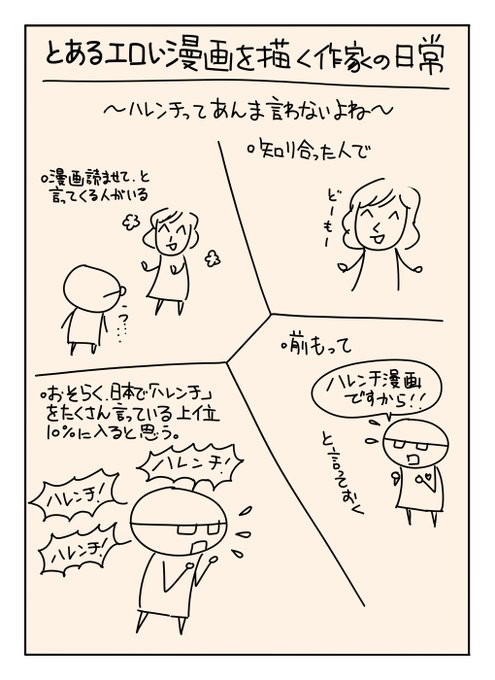 とあるエロい漫画を描く作家の日常
〜ハレンチってあんま言わないよね〜
○知り合った人で
どーもー
○漫画読ませて、と
言ってくる人がいる
うっ……
○前もって
ハレンチ漫画
ですから!!
と言っておく
○おそらく、日本で「ハレンチ」
をたくさん言っている上位
10%に入ると思う。
ハレンチ!
ハレンチ!
ハレンチ!